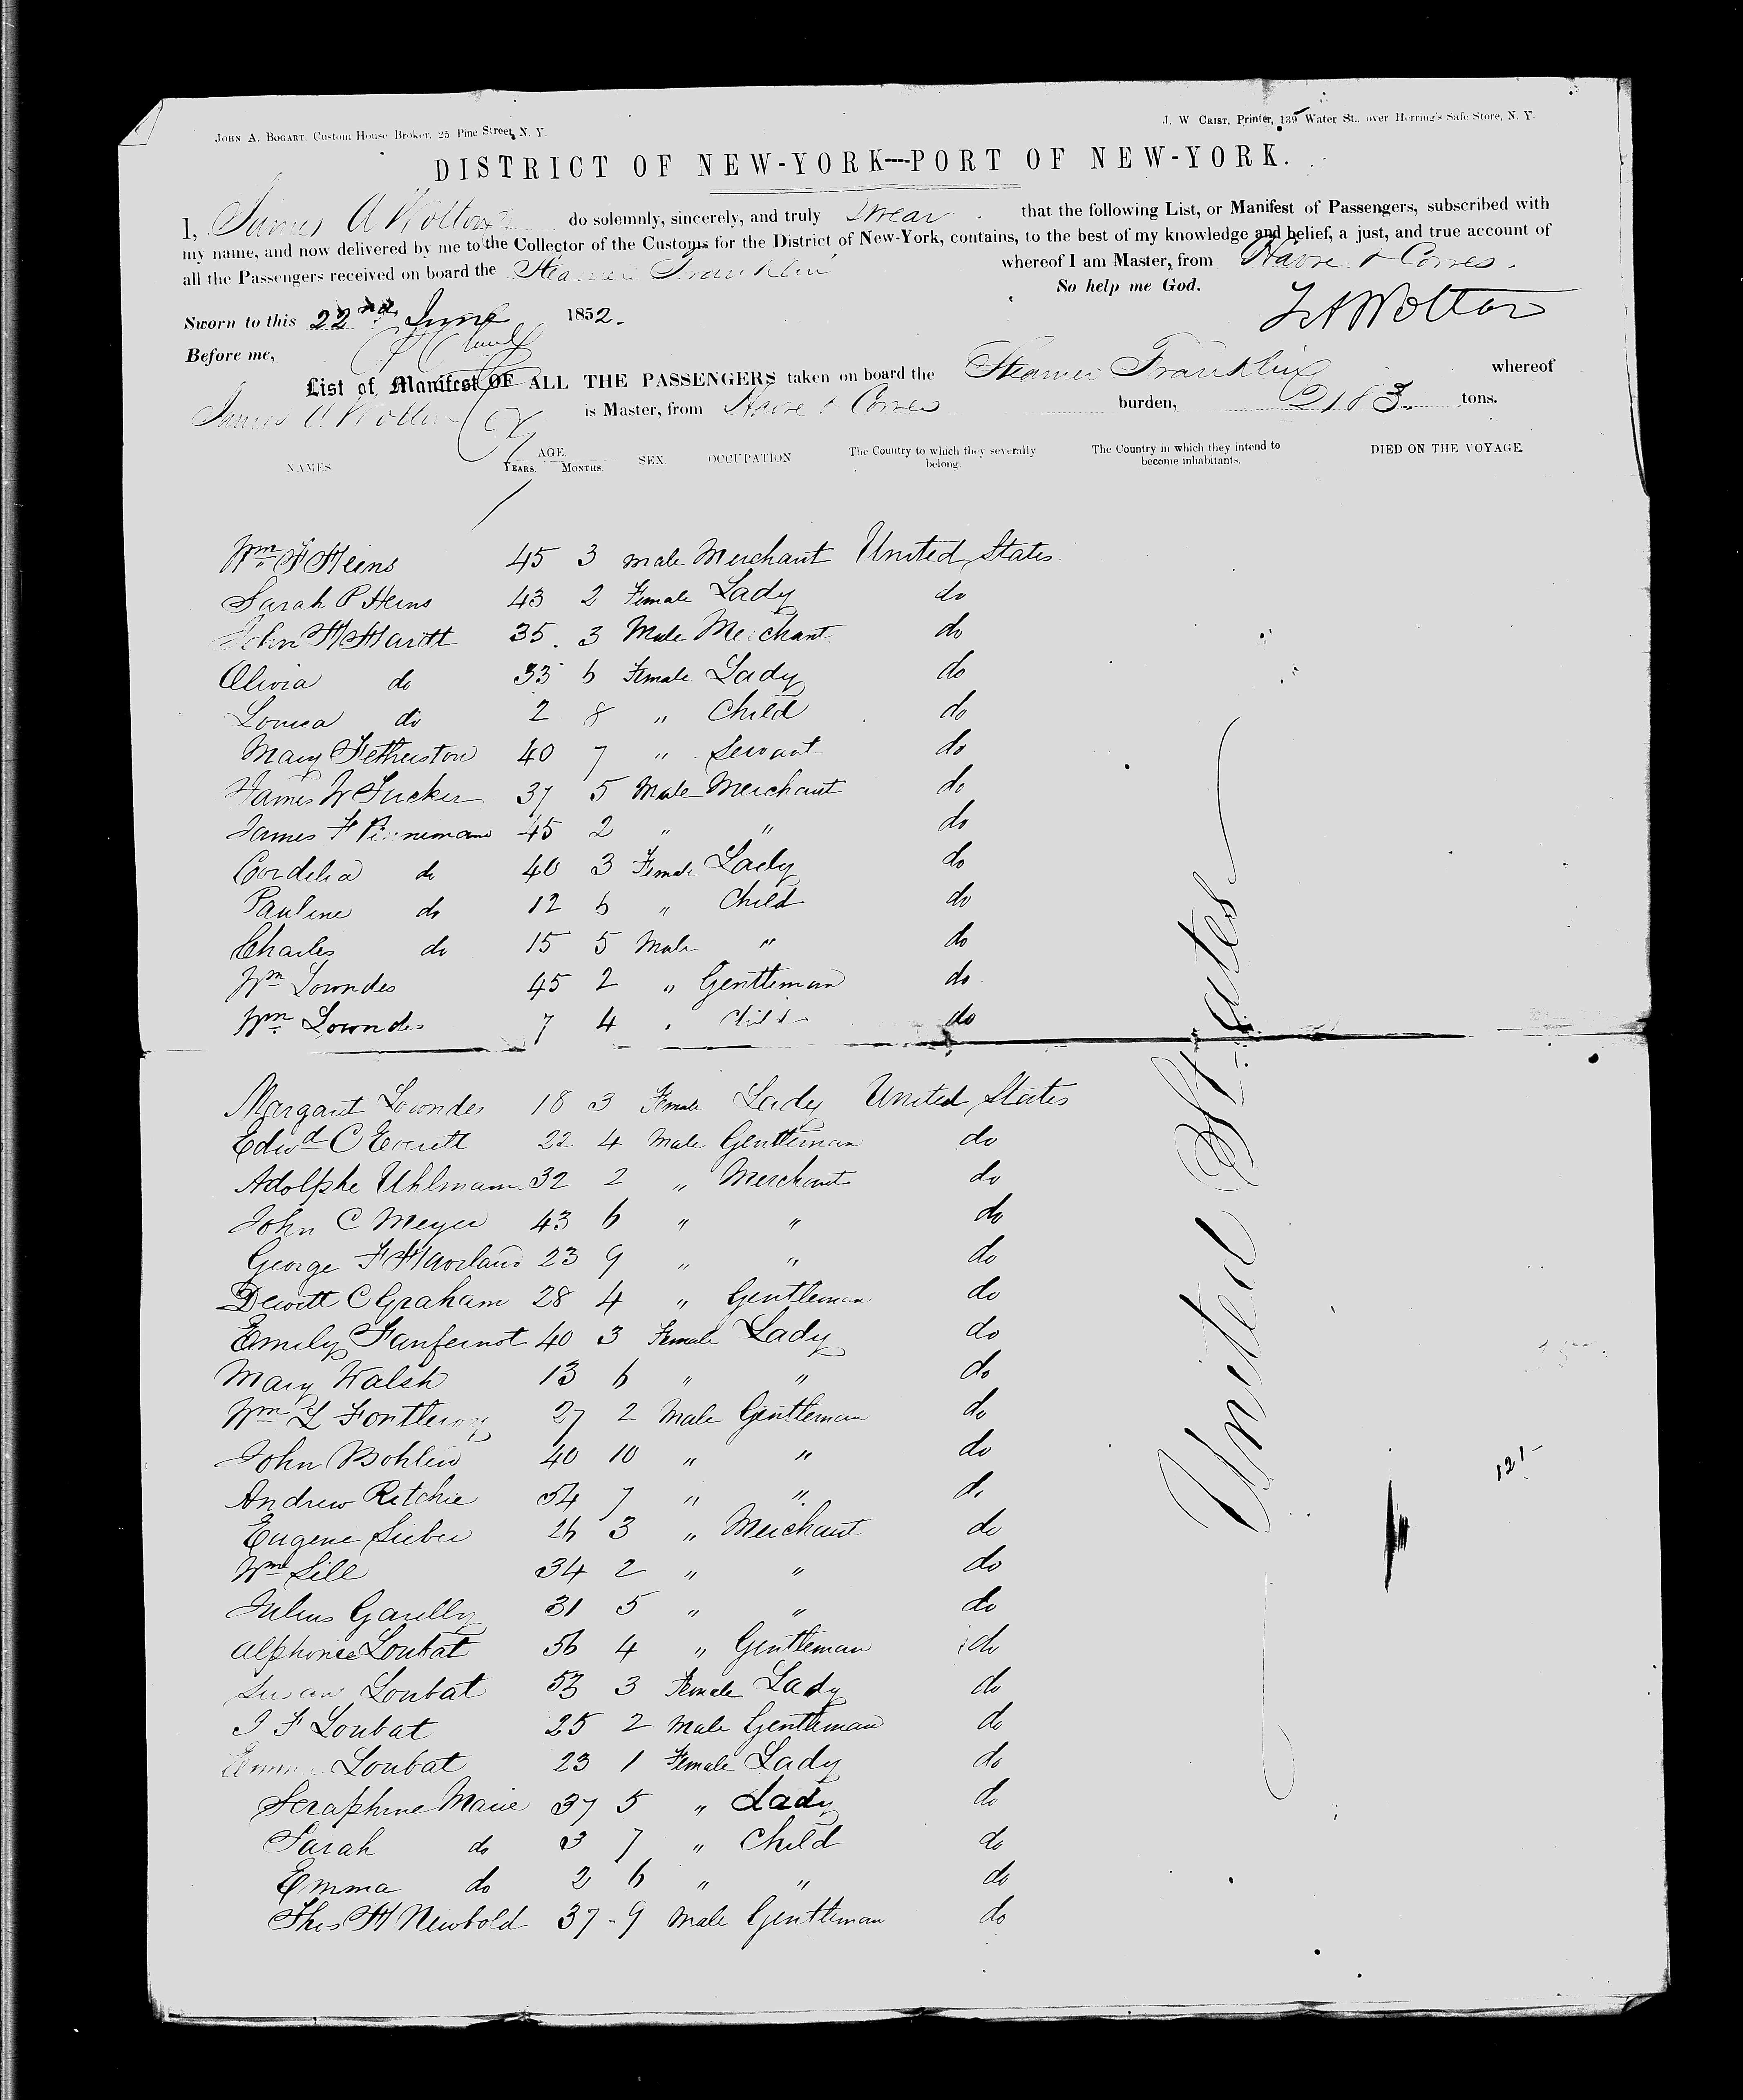 JOHN A. BOGART, Custom House Broker, 25 Pine Street, N. Y.
J. W. CRIST, Printer, 139 Water St., over Herring's Safe Store, N. Y.
DISTRICT OF NEW-YORK—PORT OF NEW-YORK.
I, James A Wotton do solemnly, sincerely, and truly swear that the following List, or Manifest of Passengers, subscribed with
my name, and now delivered by me to the Collector of the Customs for the District of New-York, contains, to the best of my knowledge and belief, a just, and true account of
all the Passengers received on board the Steamer Franklin whereof I am Master, from Havre & Cowes.
So help me God.
Sworn to this 22nd June 1852.
J A Wotton
Before me,
List of Manifest OF ALL THE PASSENGERS taken on board the Steamer Franklin whereof
James A Wotton is Master, from Havre & Cowes burden, 2183 tons.
NAMES AGE. YEARS. MONTHS. SEX. OCCUPATION The Country to which they severally belong. The Country in which they intend to become inhabitants. DIED ON THE VOYAGE.
Wm F Heins 45 3 male Merchant United States
Sarah P Heins 43 2 Female Lady do
John H Hardt 35 3 Male Merchant do
Olivia do 33 6 Female Lady do
Louisa do 2 8 " Child do
Mary Fetherston 40 7 " Servant do
James W Tucker 37 5 Male Merchant do
James F 45 2 " " do
Cordelia do 40 3 Female Lady do
Pauline do 12 6 " Child do
Charles do 15 5 Male " do
Wm Lowndes 45 2 " Gentleman do
Wm Lowndes 7 4 " Child do
Margaret Lowndes 18 3 Female Lady United States
Edwd C Everett 22 4 Male Gentleman do
Adolphe Uhlmann 32 2 " Merchant do
John C Meyer 43 6 " " do
George F 23 9 " " do
Dewitt C Graham 28 4 " Gentleman do
Emily Fanfernot 40 3 Female Lady do
Mary Walsh 13 6 " " do
Wm L 27 2 Male Gentleman do
John Bohlen 40 10 " " do
Andrew Ritchie 54 7 " " do
Eugene Sieber 26 3 " Merchant do
Wm Sill 34 2 " " do
Julius Garelly 31 5 " " do
Alphonse Loubat 56 4 " Gentleman do
Susan Loubat 53 3 Female Lady do
J F Loubat 25 2 Male Gentleman do
Emma Loubat 23 1 Female Lady do
Seraphine Marie 37 5 " Lady do
Sarah do 3 7 " Child do
Emma do 2 6 " " do
Thos H Newbold 37 9 Male Gentleman do
United States
121